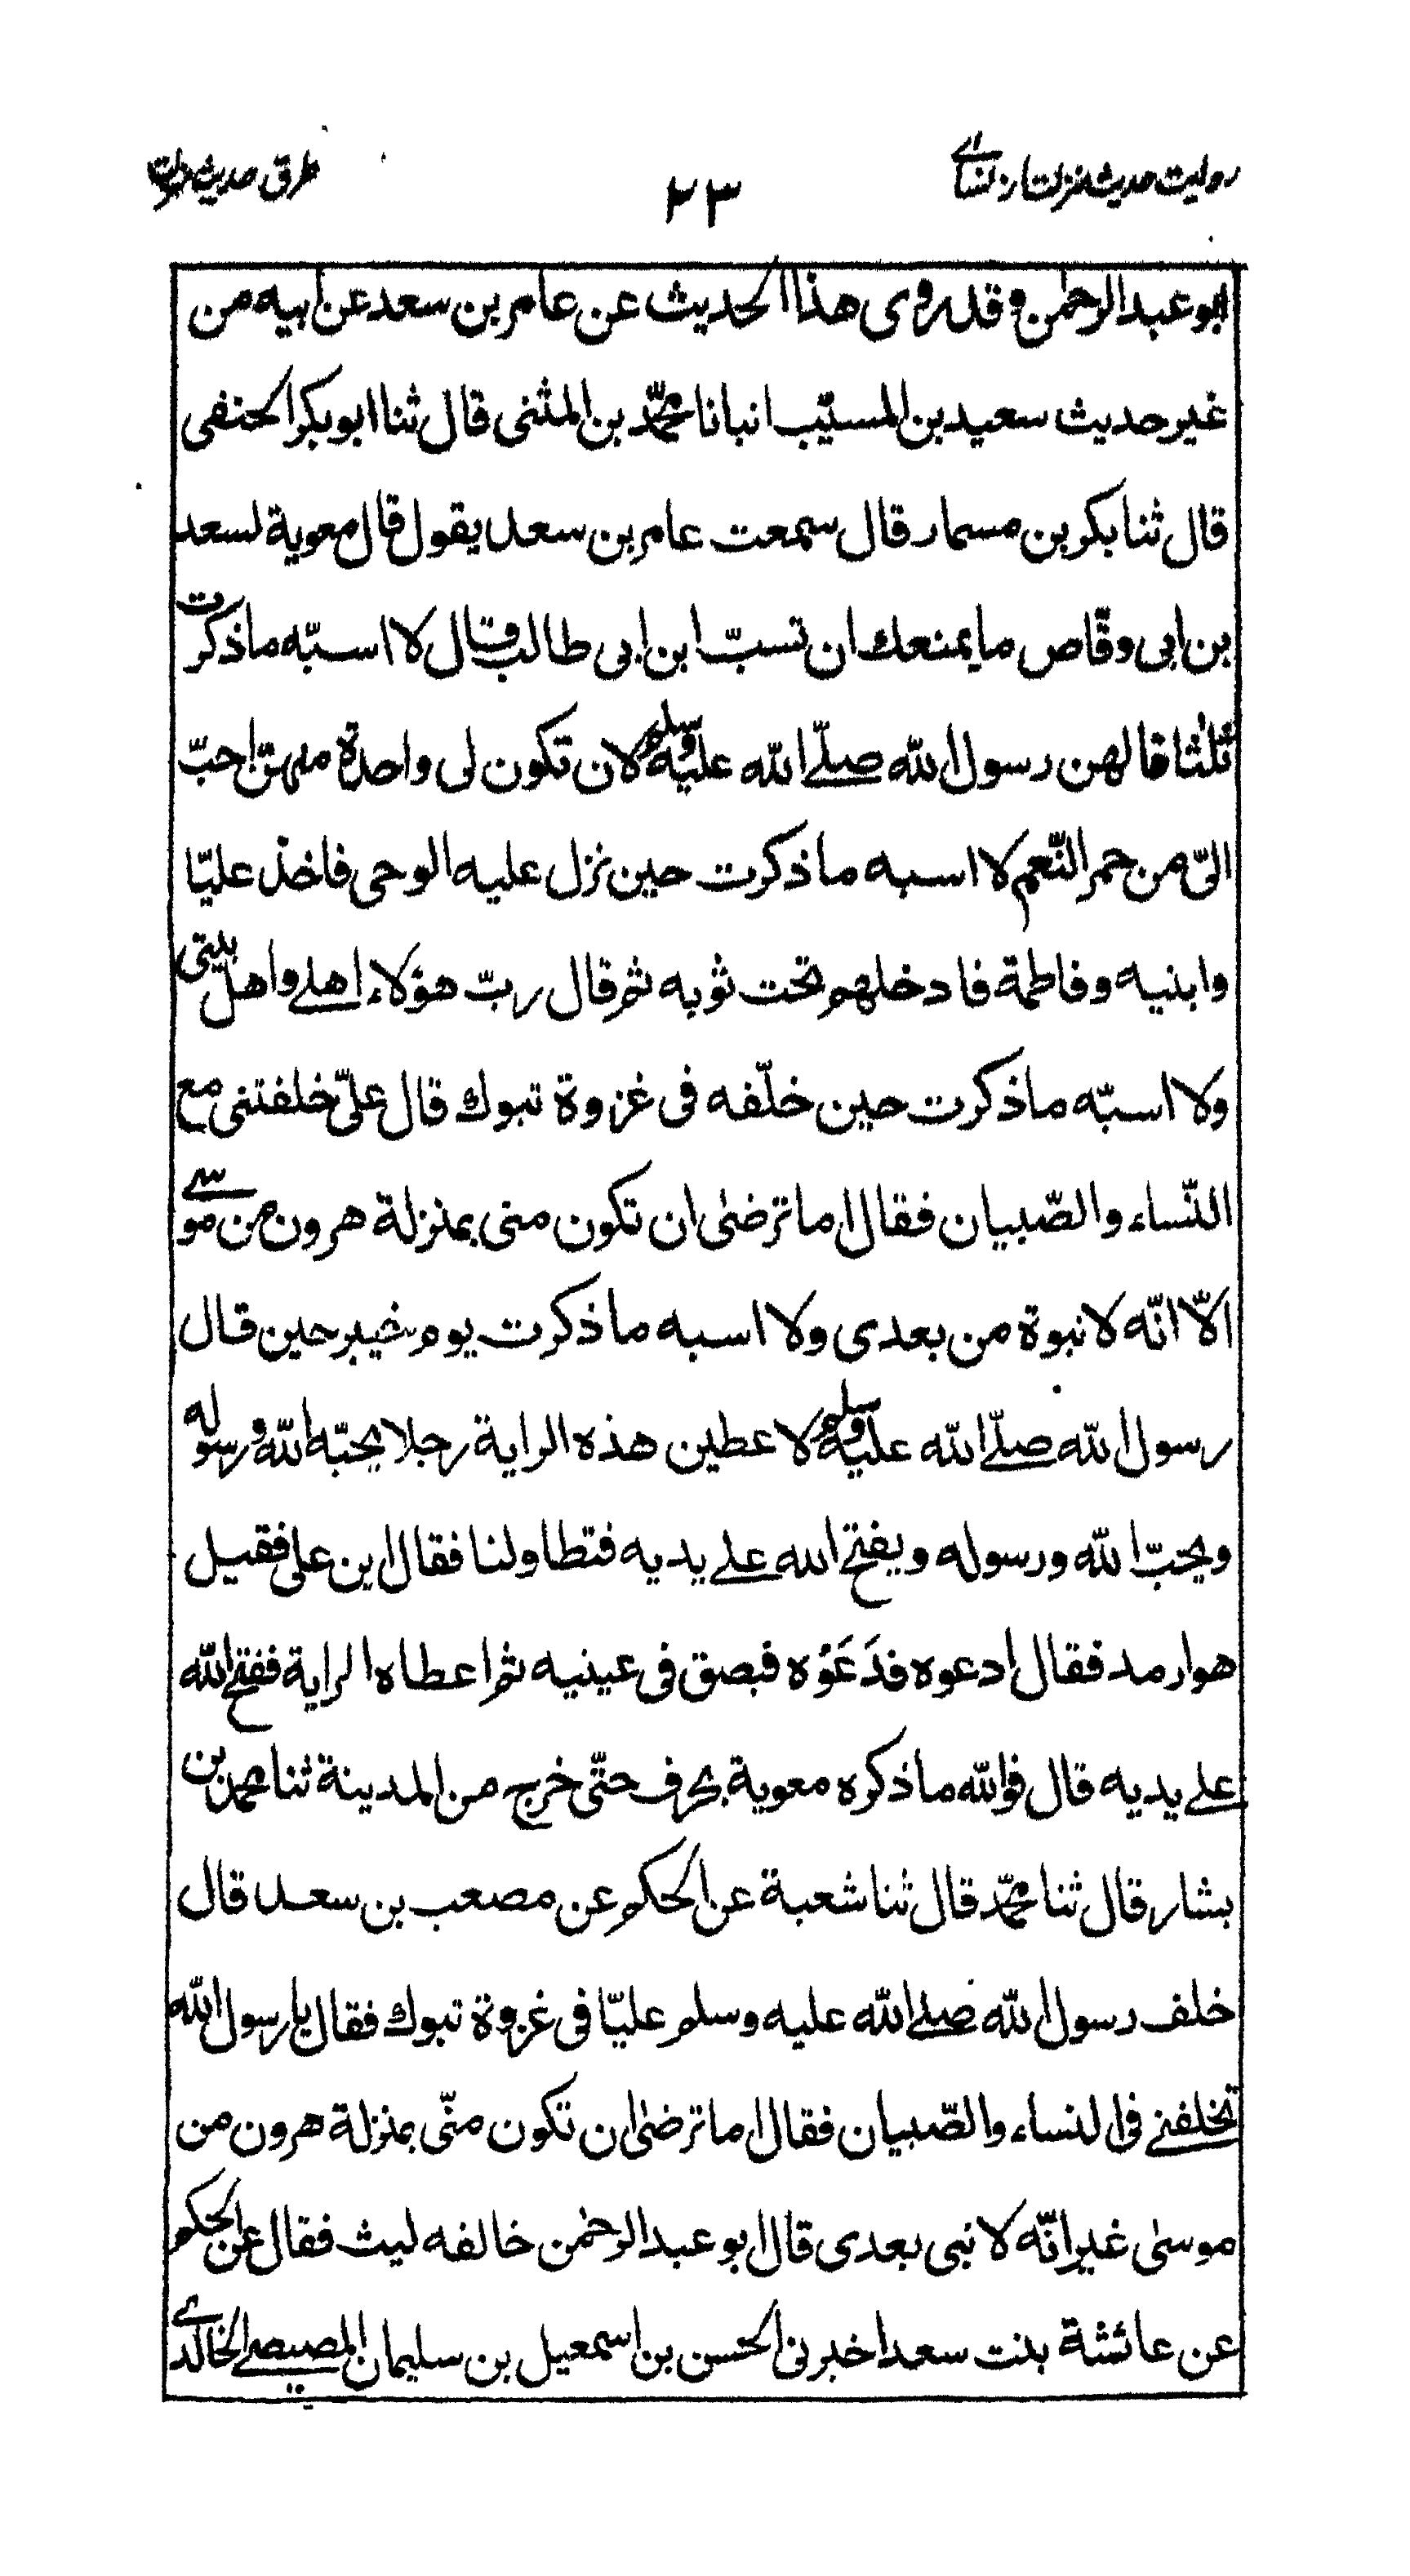 روايت حديث منزلت از نسائے
٢٣
طرق حديث
ابو عبد الرحمٰن وقد روى هذا الحديث عن عامر بن سعد عن ابيه من
غير حديث سعيد بن المسيّب انبانا محمّد بن المثنى قال ثنا ابو بكر الحنفى
قال ثنا بكر بن مسمار قال سمعت عامر بن سعد يقول قال معوية لسعد
بن ابى وقّاص ما يمنعك ان تسبّ ابن ابى طالب قال لا اسبّه ما ذكرت
ثلٰثا قالهن رسول الله صلّے الله عليه وسلم لان تكون لى واحدة منهنّ احبّ
الىّ من حمر النّعم لا اسبه ما ذكرت حين نزل عليه الوحى فاخذ عليّا
وابنيه وفاطمة فادخلهم تحت ثوبه ثم قال ربّ هؤلاء اهلے واهل بيتى
ولا اسبّه ما ذكرت حين خلّفه فى غزوة تبوك قال علىّ خلفتنى مع
النّساء والصّبيان فقال اما ترضىٰ ان تكون منى بمنزلة هرون من موسے
الّا انّه لا نبوة من بعدى ولا اسبه ما ذكرت يوم خيبر حين قال
رسول الله صلّے الله عليه وسلم لاعطين هذه الراية رجلا يحبّه الله ورسوله
ويحبّ الله ورسوله ويفتح الله علے يديه فتطاولنا فقال اين على فقيل
هو ارمد فقال ادعوه فدَعَوُه فبصق فى عينيه ثم اعطاه الراية ففتح الله
علے يديه قال فوالله ما ذكره معوية بحرف حتّى خرج من المدينة ثنا محمد بن
بشار قال ثنا محمّد قال ثنا شعبة عن الحكم عن مصعب بن سعد قال
خلف رسول الله صلے الله عليه وسلم عليّا فى غزوة تبوك فقال يا رسول الله
تخلفنے فى النساء والصّبيان فقال اما ترضىٰ ان تكون منّى بمنزلة هرون من
موسىٰ غير انّه لا نبى بعدى قال ابو عبد الرحمٰن خالفه ليث فقال عن الحكم
عن عائشة بنت سعد اخبرنى الحسن بن اسمعيل بن سليمان المصيصے الخالدے